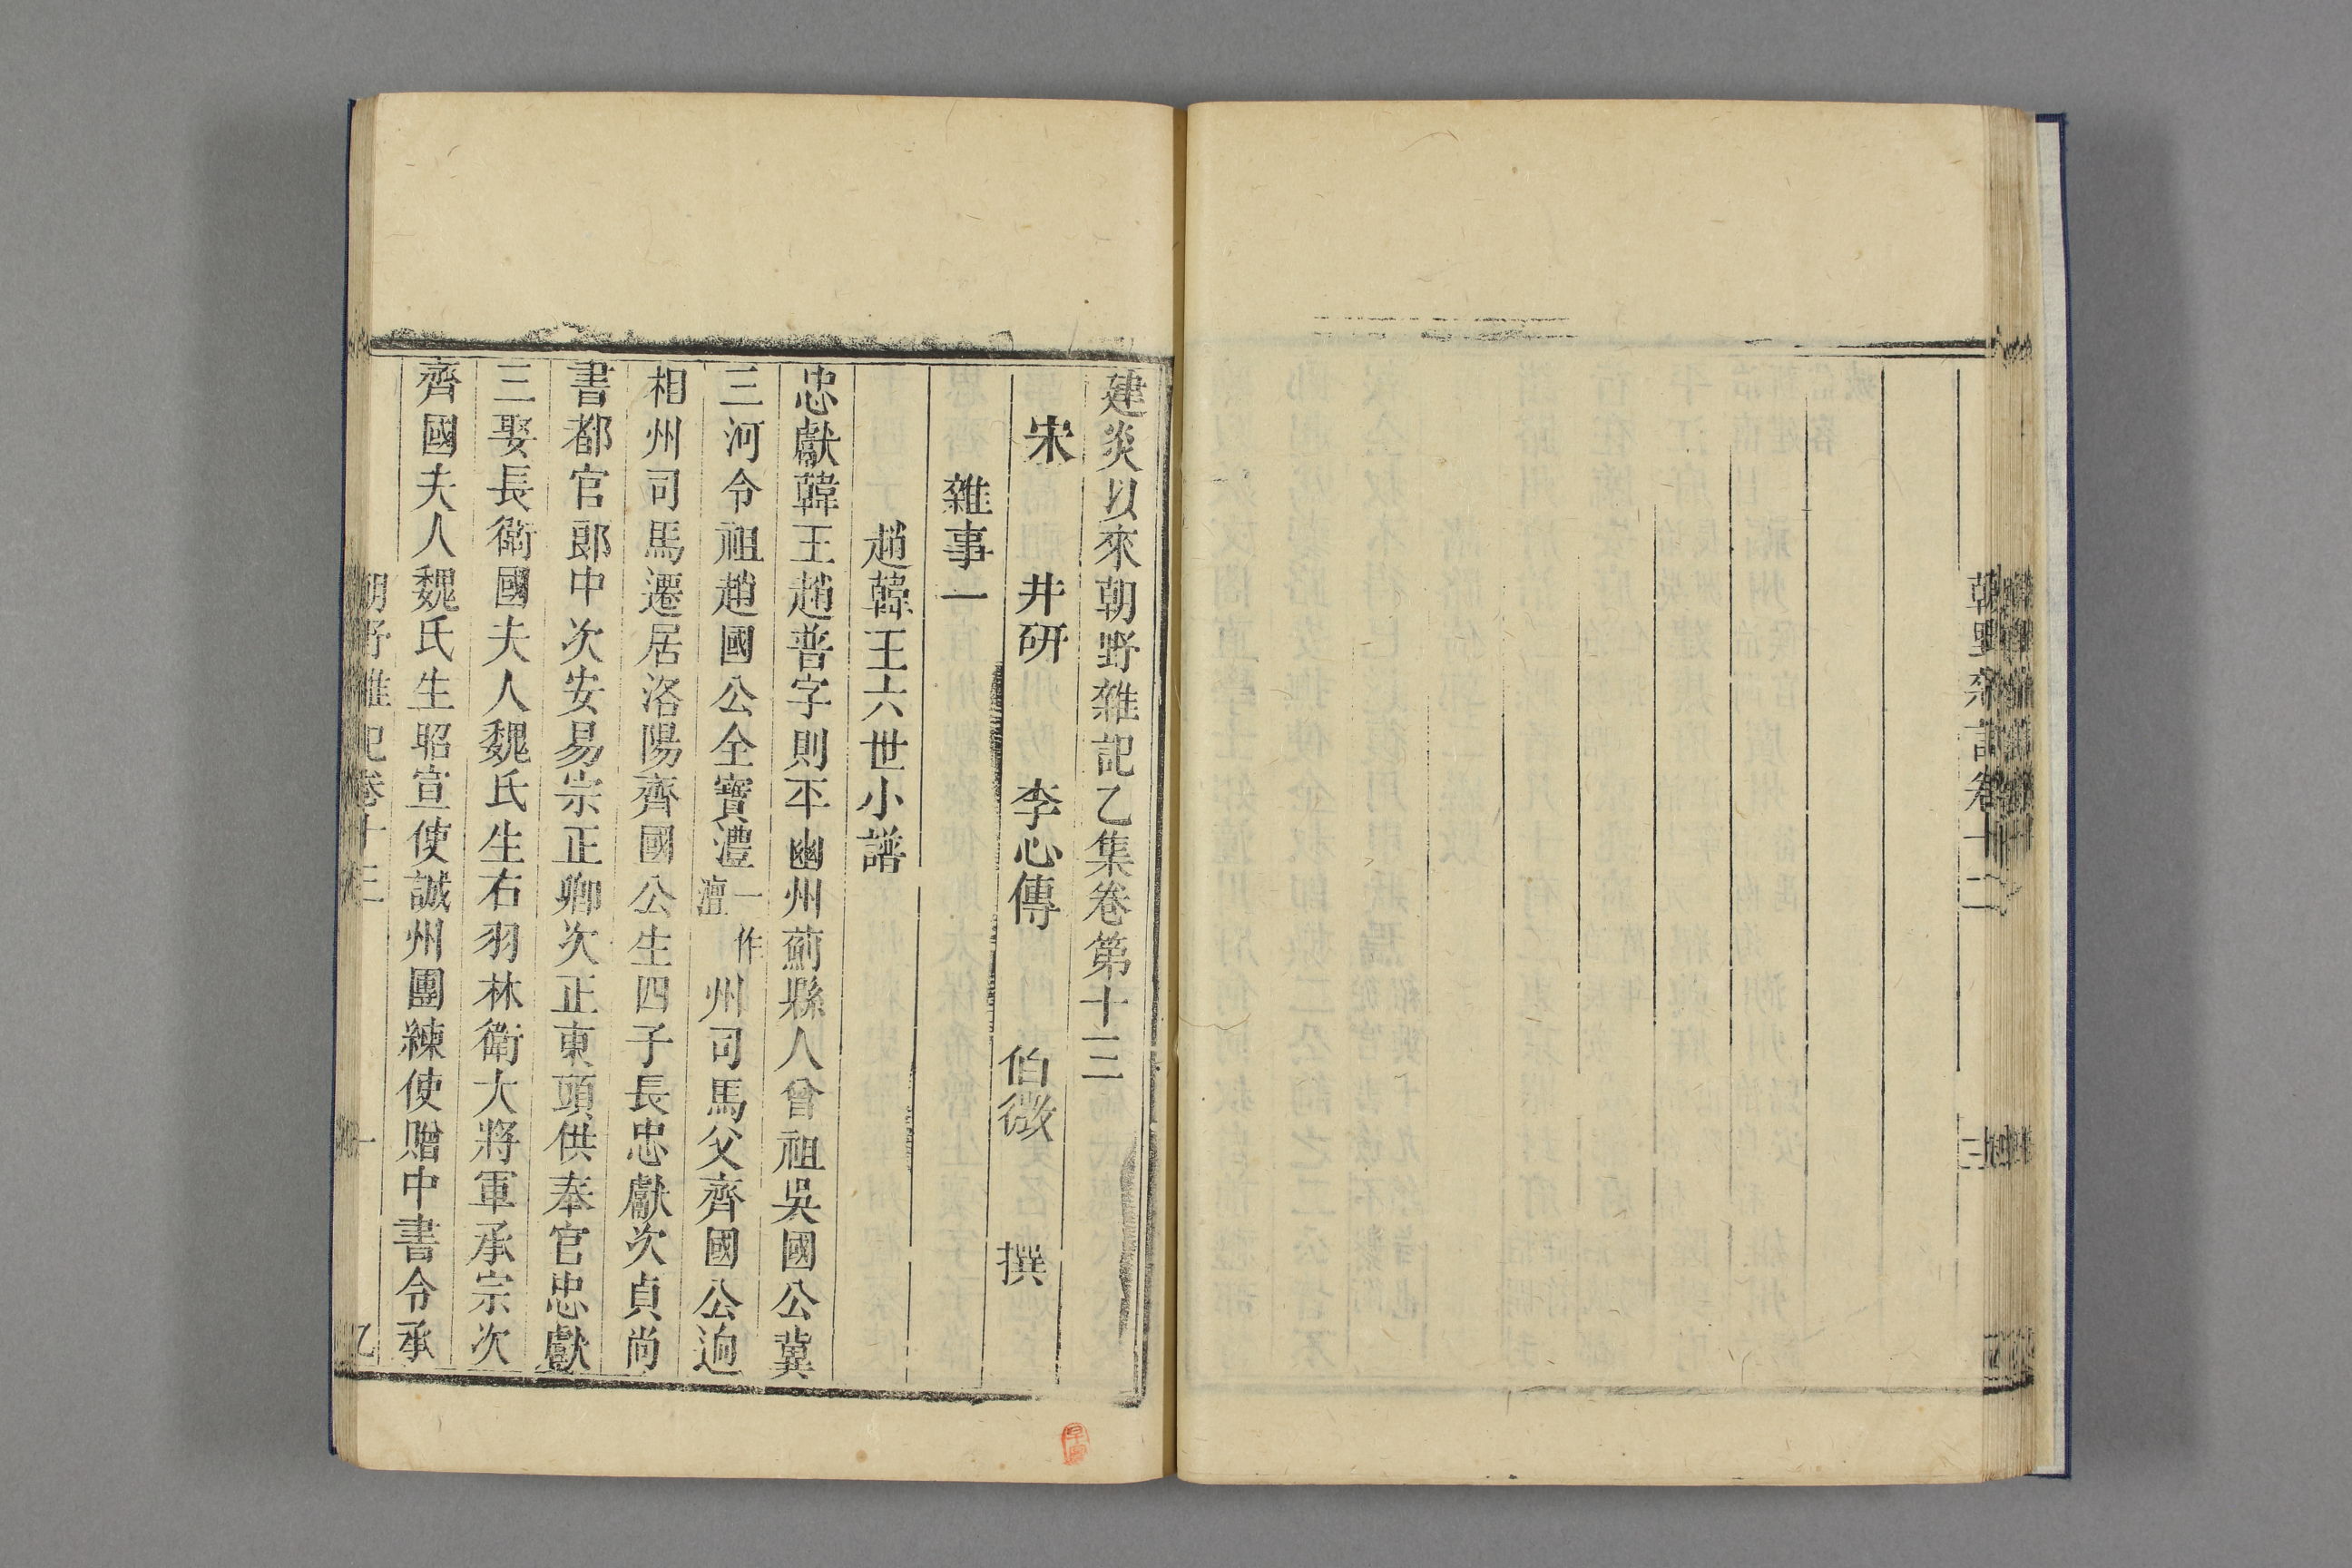 朝野雜記卷十二
建炎以來朝野雜記乙集卷第十三
宋 井研 李心傳 伯微 撰
雜事一
趙韓王六世小譜
忠獻韓王趙普字則平幽州薊縣人曾祖吳國公冀
三河令祖趙國公全寶澧一作澶州司馬父齊國公逈
相州司馬遷居洛陽齊國公生四子長忠獻次貞尚
書都官郎中次安易宗正卿次正東頭供奉官忠獻
三娶長衛國夫人魏氏生右羽林衛大將軍承宗次
齊國夫人魏氏生昭宣使誠州團練使贈中書令承
朝野雜記卷十三 一 乙